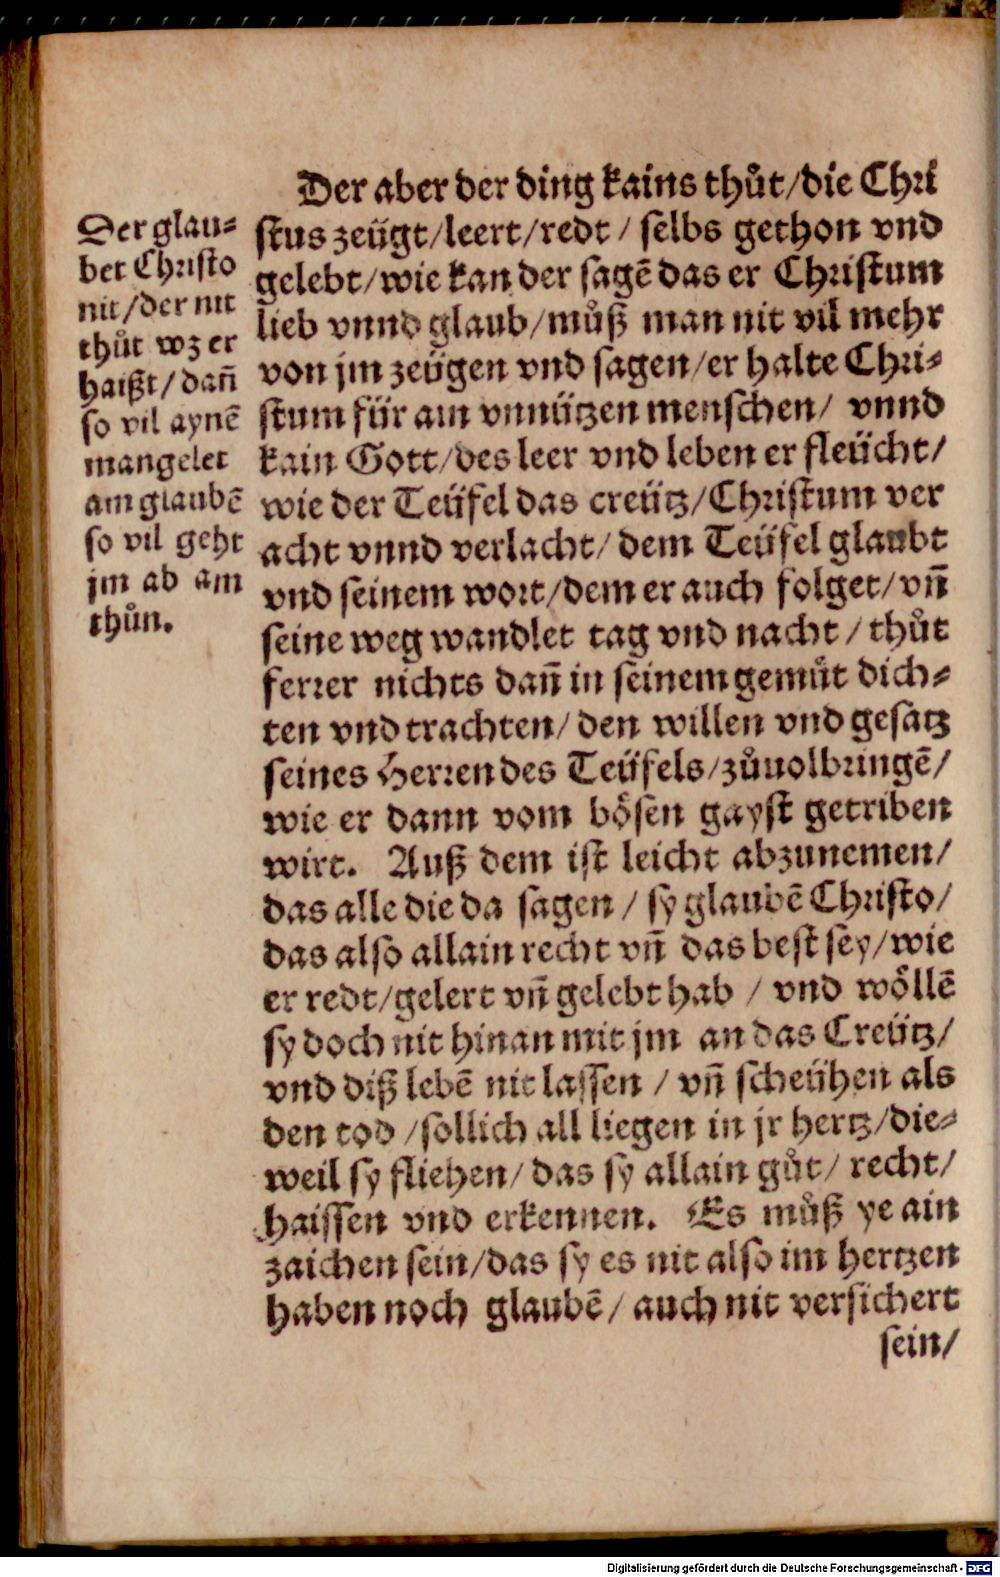 Der glau⸗
bet Christo
nit/der nit
thůt wz er
haißt/ dañ
so vil aynē
mangelet
am glaubē
so vil geht
jm ab am
thůn.
Der aber der ding kains thůt/die Chri
stus zeügt/leert/redt / selbs gethon vnd
gelebt/wie kan der sagē das er Christum
lieb vnnd glaub/můß man nit vil mehr
von jm zeügen vnd sagen/er halte Chri⸗
stum für ain vnnützen menschen/ vnnd
kain Gott/des leer vnd leben er fleücht/
wie der Teüfel das creütz/Christum ver
acht vnnd verlacht/ dem Teüfel glaubt
vnd seinem wort/dem er auch folget/ vñ
seine weg wandlet tag vnd nacht / thůt
ferrer nichts dañ in seinem gemůt dich⸗
ten vnd trachten/ den willen vnd gesatz
seines Herren des Teüfels/zůuolbringē/
wie er dann vom bösen gayst getriben
wirt. Auß dem ist leicht abzunemen/
das alle die da sagen / sy glaubē Christo/
das also allain recht vñ das best sey/wie
er redt/gelert vñ gelebt hab / vnd wöllē
sy doch nit hinan mit jm an das Creütz/
vnd diß lebē nit lassen / vñ scheühen als
den tod /sollich all liegen in jr hertz/die⸗
weil sy fliehen/ das sy allain gůt/ recht/
haissen vnd erkennen. Es můß ye ain
zaichen sein/das sy es nit also im hertzen
haben noch glaubē/ auch nit versichert
sein/
Digitalisierung gefördert durch die Deutsche Forschungsgemeinschaft - DFG